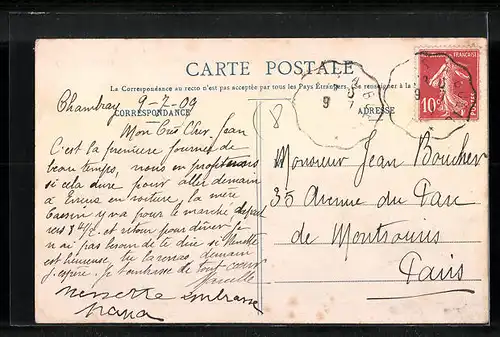 CARTE POSTALE
La Correspondance au recto n'est pas acceptée par tous les Pays Étrangers. Se renseigner à la
CORRESPONDANCE
ADRESSE
Chambray 9-7-09
Mon Très Cher Jean
C'est la première journée de
beau temps, nous en profitons
si cela dure pour aller demain
à Evreux en voiture, la mère
y va pour le marché
et retour pour dîner. Je
n'ai pas besoin de te dire si Ninette
est heureuse, tu la verras, demain
j'espère. Je t'embrasse de tout cœur
Ninette embrasse
Nana
8
Monsieur Jean Boucher
35 Avenue du Parc
de Montsouris
Paris
FRANÇAISE
10c